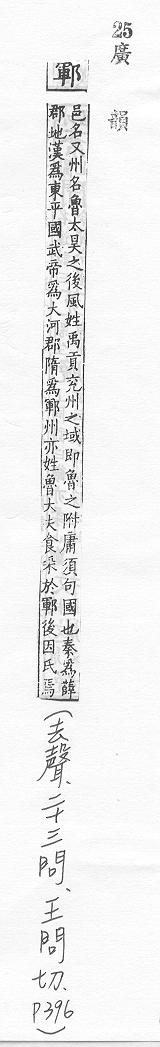 25 廣韻
鄆
邑名又州名魯太昊之後風姓禹貢兖州之域即魯之附庸須句國也秦爲薛
郡地漢爲東平國武帝爲大河郡隋爲鄆州亦姓魯大夫食采於鄆後因氏焉
(去聲、二十三問、王問切、P396)